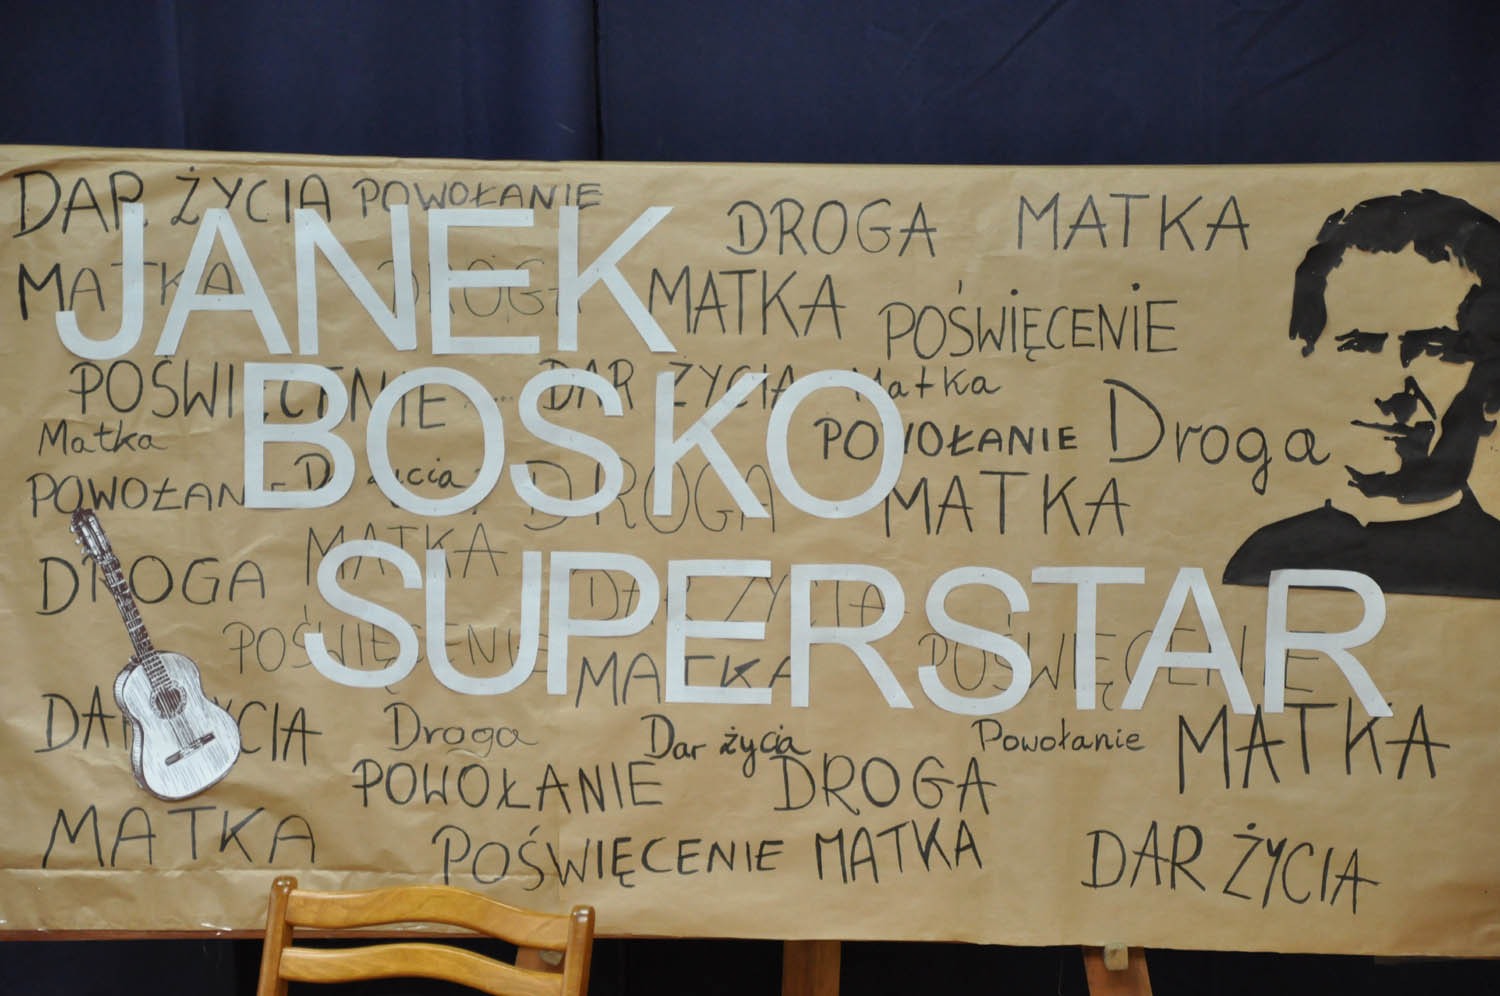 DAR ŻYCIA POWOŁANIE
DROGA MATKA
JANEK
MATKA DROGA MATKA POŚWIĘCENIE
POŚWIĘCENIE DAR ŻYCIA Matka
BOSKO
Matka POWOŁANIE Droga
POWOŁANIE Dar życia DROGA MATKA
MATKA
DROGA DAR ŻYCIA
SUPERSTAR
POŚWIĘCENIE MATKA POŚWIĘCENIE
DAR ŻYCIA Droga Dar życia Powołanie MATKA
POWOŁANIE DROGA
MATKA POŚWIĘCENIE MATKA DAR ŻYCIA